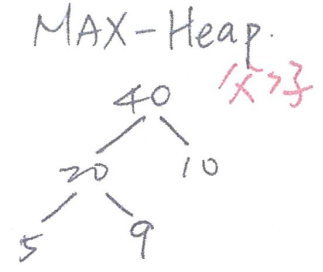 MAX-Heap.
父>子
40
20 10
5 9